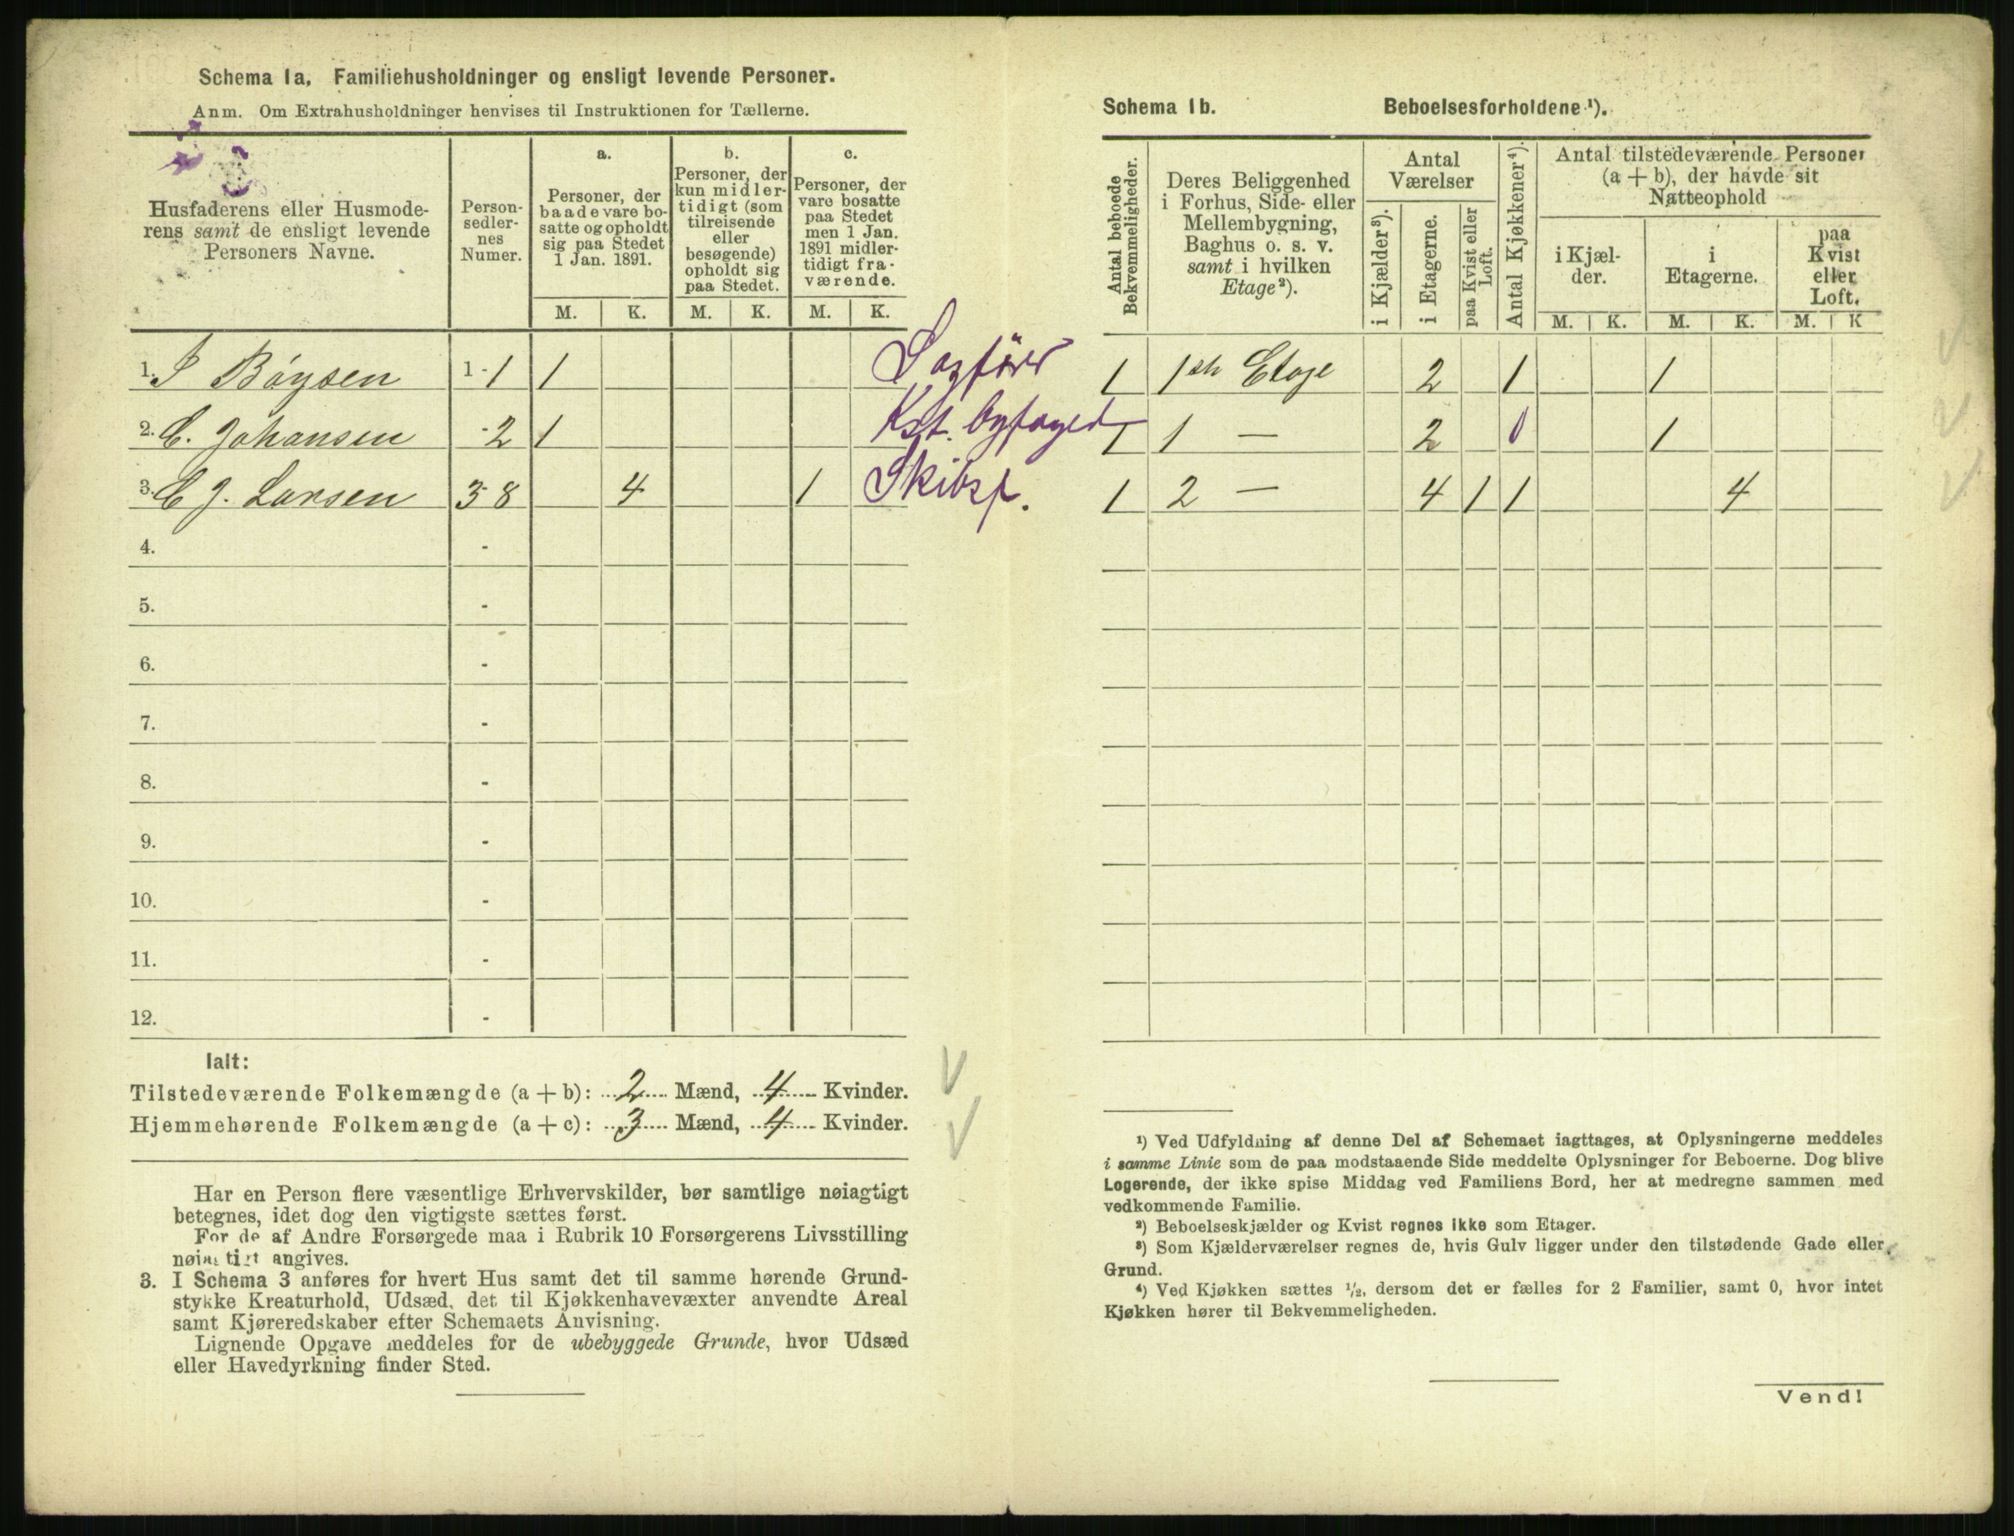 Schema 1a. Familiehusholdninger og ensligt levende Personer.
Anm. Om Extrahusholdninger henvises til Instruktionen for Tællerne.
Husfaderens eller Husmode-
rens samt de ensligt levende
Personers Navne.
Person-
sedler-
nes
Numer.
a.
Personer, der
baade vare bo-
satte og opholdt
sig paa Stedet
1 Jan. 1891.
b.
Personer, der
kun midler-
tidigt (som
tilreisende
eller
besøgende)
opholdt sig
paa Stedet.
c.
Personer, der
vare bosatte
paa Stedet
men 1 Jan.
1891 midler-
tidigt fra-
værende.
M. K. M. K. M. K.
1. J Böysen 1-1 1 Sagfören
2. C. Johansen -2 1 Kst. byfoged
3. C J. Larsen 3-8 4 1 Skibsf.
4. -
5. -
6. -
7. -
8. -
9. -
10. -
11. -
12. -
Ialt:
Tilstedeværende Folkemængde (a + b): 2 Mænd, 4 Kvinder.
Hjemmehørende Folkemængde (a + c): 3 Mænd, 4 Kvinder.
Har en Person flere væsentlige Erhvervskilder, bør samtlige nøiagtigt
betegnes, idet dog den vigtigste sættes først.
For de af Andre Forsørgede maa i Rubrik 10 Forsørgerens Livsstilling
nøiagtigt angives.
3. I Schema 3 anføres for hvert Hus samt det til samme hørende Grund-
stykke Kreaturhold, Udsæd, det til Kjøkkenhavevæxter anvendte Areal
samt Kjøreredskaber efter Schemaets Anvisning.
Lignende Opgave meddeles for de ubebyggede Grunde, hvor Udsæd
eller Havedyrkning finder Sted.
Schema 1b. Beboelsesforholdene ¹).
Antal beboede
Bekvemmeligheder.
Deres Beliggenhed
i Forhus, Side- eller
Mellembygning,
Baghus o. s. v.
samt i hvilken
Etage²).
Antal
Værelser
i Kjælder³).
i Etagerne.
paa Kvist eller
Loft.
Antal Kjøkkener⁴).
Antal tilstedeværende Personer
(a + b), der havde sit
Natteophold
i Kjæl-
der.
i
Etagerne.
paa
Kvist
eller
Loft.
M. K. M. K. M. K
1 1ste Etage 2 1 1
1 1 — 2 0 1
1 2 — 4 1 1 4
¹) Ved Udfyldning af denne Del af Schemaet iagttages, at Oplysningerne meddeles
i samme Linie som de paa modstaaende Side meddelte Oplysninger for Beboerne. Dog blive
Logerende, der ikke spise Middag ved Familiens Bord, her at medregne sammen med
vedkommende Familie.
²) Beboelseskjælder og Kvist regnes ikke som Etager.
³) Som Kjælderværelser regnes de, hvis Gulv ligger under den tilstødende Gade eller
Grund.
⁴) Ved Kjøkken sættes ½, dersom det er fælles for 2 Familier, samt 0, hvor intet
Kjøkken hører til Bekvemmeligheden.
Vend!